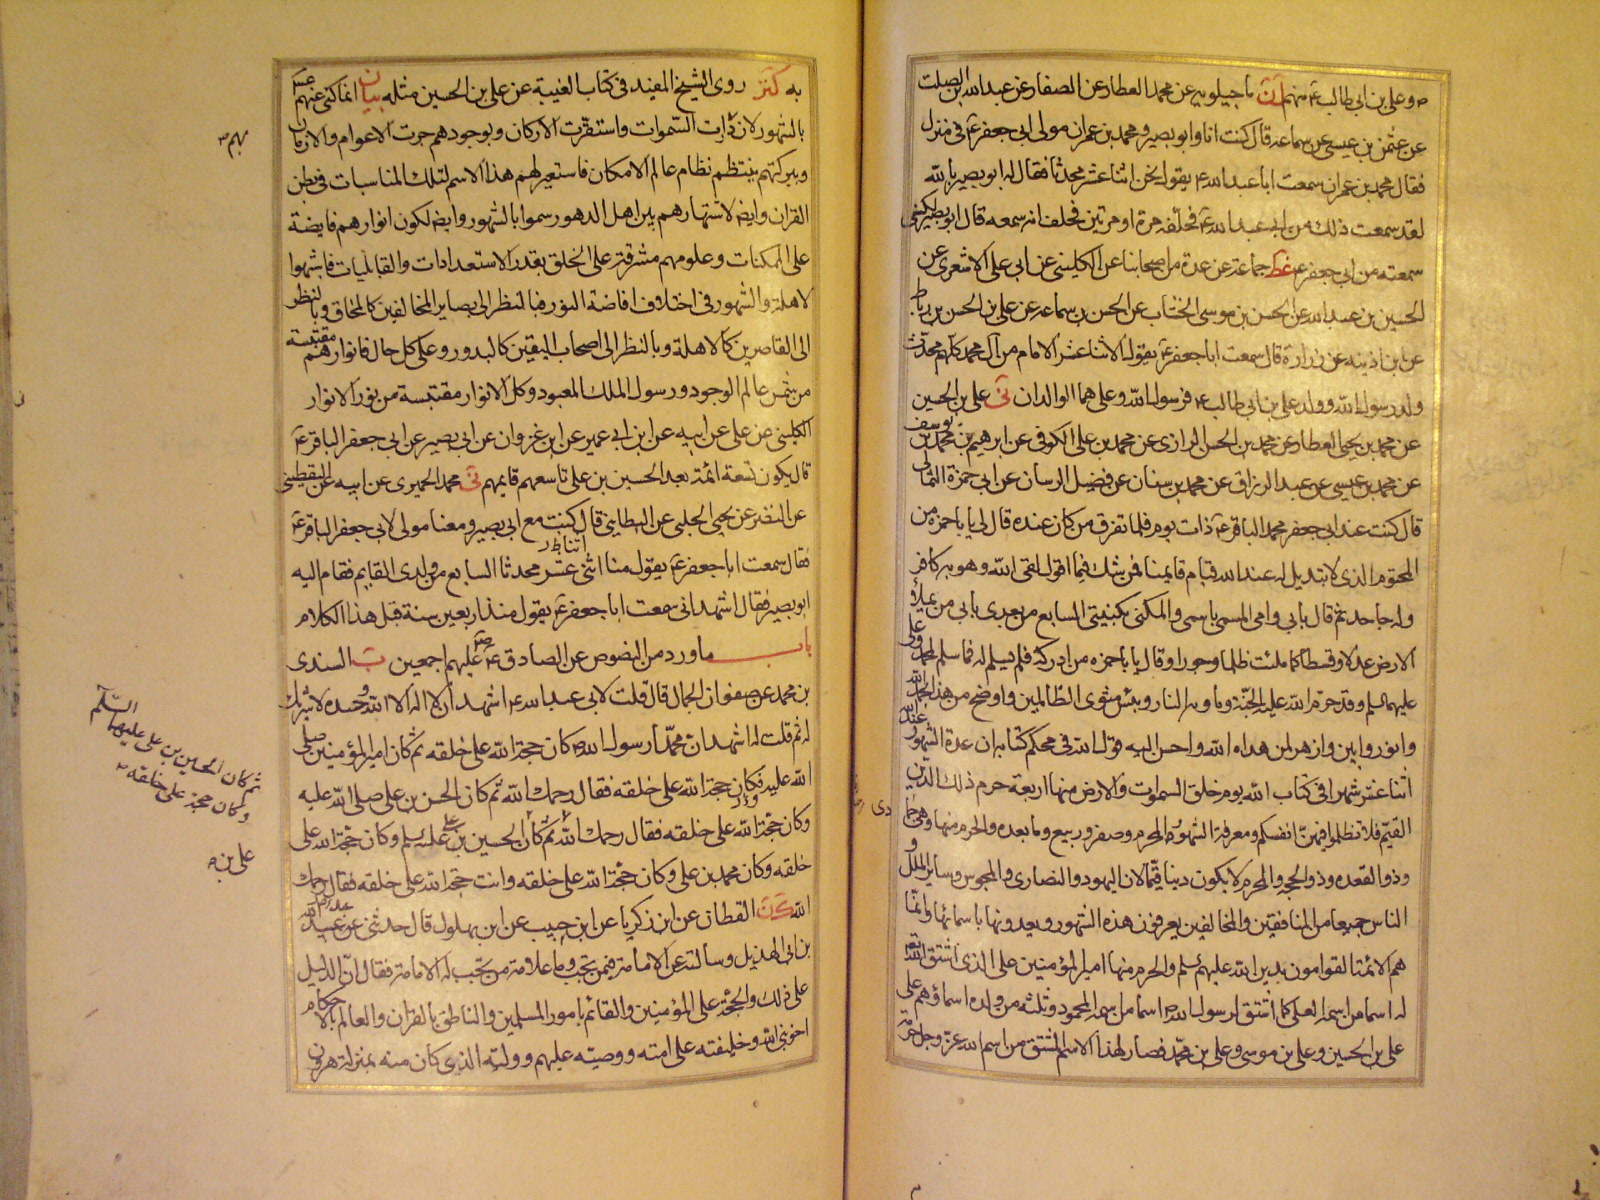 وعلي بن ابي طالب ع منهم ماجيلويه عن محمد العطار عن الصفار عن عبد الله بن الصلت
عن عثمن بن عيسى عن سماعه قال كنت انا وابو بصير ومحمد بن عمران مولى ابي جعفر ع في منزل
فقال محمد بن عمران سمعت ابا عبد الله ع يقول نحن اثنا عشر محدثا فقال له ابو بصير بالله
لقد سمعت ذلك من ابي عبد الله ع فحلفه مرة او مرتين فحلف انه سمعه قال ابو بصير لكني
سمعته من ابي جعفر ع غط جماعة عن عدة من اصحابنا عن الكليني عن ابي علي الاشعري عن
الحسين بن عبد الله عن الحسن بن موسى الخشاب عن الحسن بن سماعه عن علي بن الحسن بن رباط
عن ابن اذينه عن زرارة قال سمعت ابا جعفر ع يقول الاثنا عشر الامام من آل محمد كلهم محدث
ولد رسول الله وولد علي بن ابي طالب ع فرسول الله وعلي هما الوالدان نى علي بن الحسين
عن محمد بن يحيى العطار عن محمد بن الحسن الرازي عن محمد بن علي الكوفي عن ابرهيم بن محمد بن يوسف
عن محمد بن عيسى عن عبد الرزاق عن محمد بن سنان عن فضيل الرسان عن ابي حمزة الثمالي
قال كنت عند ابي جعفر محمد الباقر ع ذات يوم فلما تفرق من كان عنده قال لي يا با حمزه من
المحتوم الذي لا تبديل له عند الله قيام قايمنا فمن شك فيما اقول لقى الله وهو به كافر
وله جاحد ثم قال بابي وامي المسمى باسمي والمكنى بكنيتي السابع من بعدي بابي من يملأ
الارض عدلا وقسطا كما ملئت ظلما وجورا وقال يا با حمزه من ادركه فلم يسلم له فما سلم لمحمد وعلي
عليهما السلم وقد حرم الله عليه الجنة وماويه النار وبئس مثوى الظالمين واوضح من هذا بحمد الله
وانور وابين وازهر لمن هداه الله واحسن اليه قول الله في محكم كتابه ان عدة الشهور عند الله
اثنا عشر شهرا في كتاب الله يوم خلق السموات والارض منها اربعة حرم ذلك الدين
القيم فلا تظلموا فيهن انفسكم ومعرفة الشهور المحرم وصفر وربيع وما بعده والحرم منها وهي جما
وذو القعده وذو الحجه والمحرم لا يكون دينا قيما لان اليهود والنصارى والمجوس وساير الملل و
الناس جميعا من المنافقين والمخالفين يعرفون هذه الشهور ويعدونها باسمائها وانما
هم الائمة القوامون بدين الله عليهم السلم والحرم منها امير المؤمنين علي الذي اشتق الله تعه
له اسما من اسمه العلي كما اشتق لرسول الله ص اسما من اسمه المحمود وثلثه من ولده اسماؤهم علي
علي بن الحسين وعلي بن موسى وعلي بن محمد فصار لهذا الاسم المشتق من اسم الله عز وجل حرمة
به كنز روى الشيخ المفيد في كتاب الغيبة عن علي بن الحسين مثله بيان انما كنى عنهم
بالشهور لان دارت السموات واستقرت الاركان وبوجودهم جرت الاعوام والازمان
وببركتهم ينتظم نظام عالم الامكان فاستعير لهم هذا الاسم لتلك المناسبات في بطن
القران وايضه لاشتهارهم بين اهل الدهور سموا بالشهور وايضه لكون انوارهم فايضة
على الممكنات وعلومهم مشرقة على الخلق بقدر الاستعدادات والقابليات فاشبهوا
الاهلة والشهور في اختلاف افاضة النور فبالنظر الى بصاير المخالفين كالمحاق وبالنظر
الى القاصرين كالاهلة وبالنظر الى اصحاب اليقين كالبدور وعلى كل حال فانوارهم مقتبسة
من شمس عالم الوجود ورسول الملك المعبود وكل الانوار مقتبسة من نور الانوار
الكليني عن علي عن ابيه عن ابن ابي عمير عن ابن غزوان عن ابي بصير عن ابي جعفر الباقر ع
قال يكون تسعة ائمة بعد الحسين بن علي تاسعهم قايمهم نى محمد الحميري عن ابيه عن اليقطيني
عن النضر عن يحيى الحلبي عن البطايني قال كنت مع ابي بصير ومعنا مولى لابي جعفر الباقر ع
فقال سمعت ابا جعفر ع يقول منا اثني عشر محدثا السابع من ولدي القايم فقام اليه
ابو بصير فقال اشهد اني سمعت ابا جعفر ع يقول منذ اربعين سنة قبل هذا الكلام
باب ما ورد من النصوص عن الصادق ع عليهم اجمعين ب السندي
بن محمد عن صفوان الجمال قال قلت لابي عبد الله ع اشهد ان لا اله الا الله وحده لا شريك
له ثم قلت له اشهد ان محمدا رسول الله ص كان حجة الله على خلقه ثم كان امير المؤمنين صلى
الله عليه فكان حجة الله على خلقه فقال رحمك الله ثم كان الحسن بن علي صلى الله عليه
وكان حجة الله على خلقه فقال رحمك الله ثم كان الحسين بن علي عليه السلم وكان حجة الله على
خلقه وكان محمد بن علي وكان حجة الله على خلقه وانت حجة الله على خلقه فقال رحمك
الله القطان عن ابن زكريا عن ابن حبيب عن ابن بهلول قال حدثني عبد الله
بن ابي الهذيل وسالته عن الامامة فيمن تجب وما علامة من تجب له الامامة فقال ان الدليل
على ذلك والحجة على المؤمنين والقائم بامور المسلمين والناطق بالقران والعالم بالاحكام
اخو نبي الله وخليفته على امته ووصيه عليهم ووليه الذي كان منه بمنزلة هرون
بهم
ثم كان الحسين بن علي عليهما السلم
وكان حجة على خلقه
علي بن